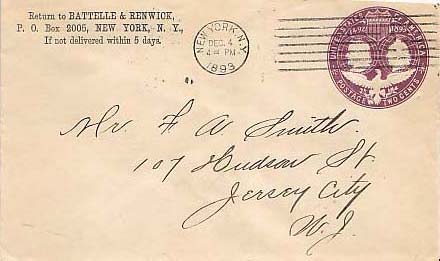 Return to BATTELLE & RENWICK,
P. O. Box 2005, NEW YORK, N. Y.,
If not delivered within 5 days.
NEW YORK, N.Y.
DEC. 4
4 - PM
1893
UNITED STATES OF AMERICA
1492 1892
POSTAGE TWO CENTS
Mr. F A Smith.
107 Hudson St.
Jersey City
N. J.